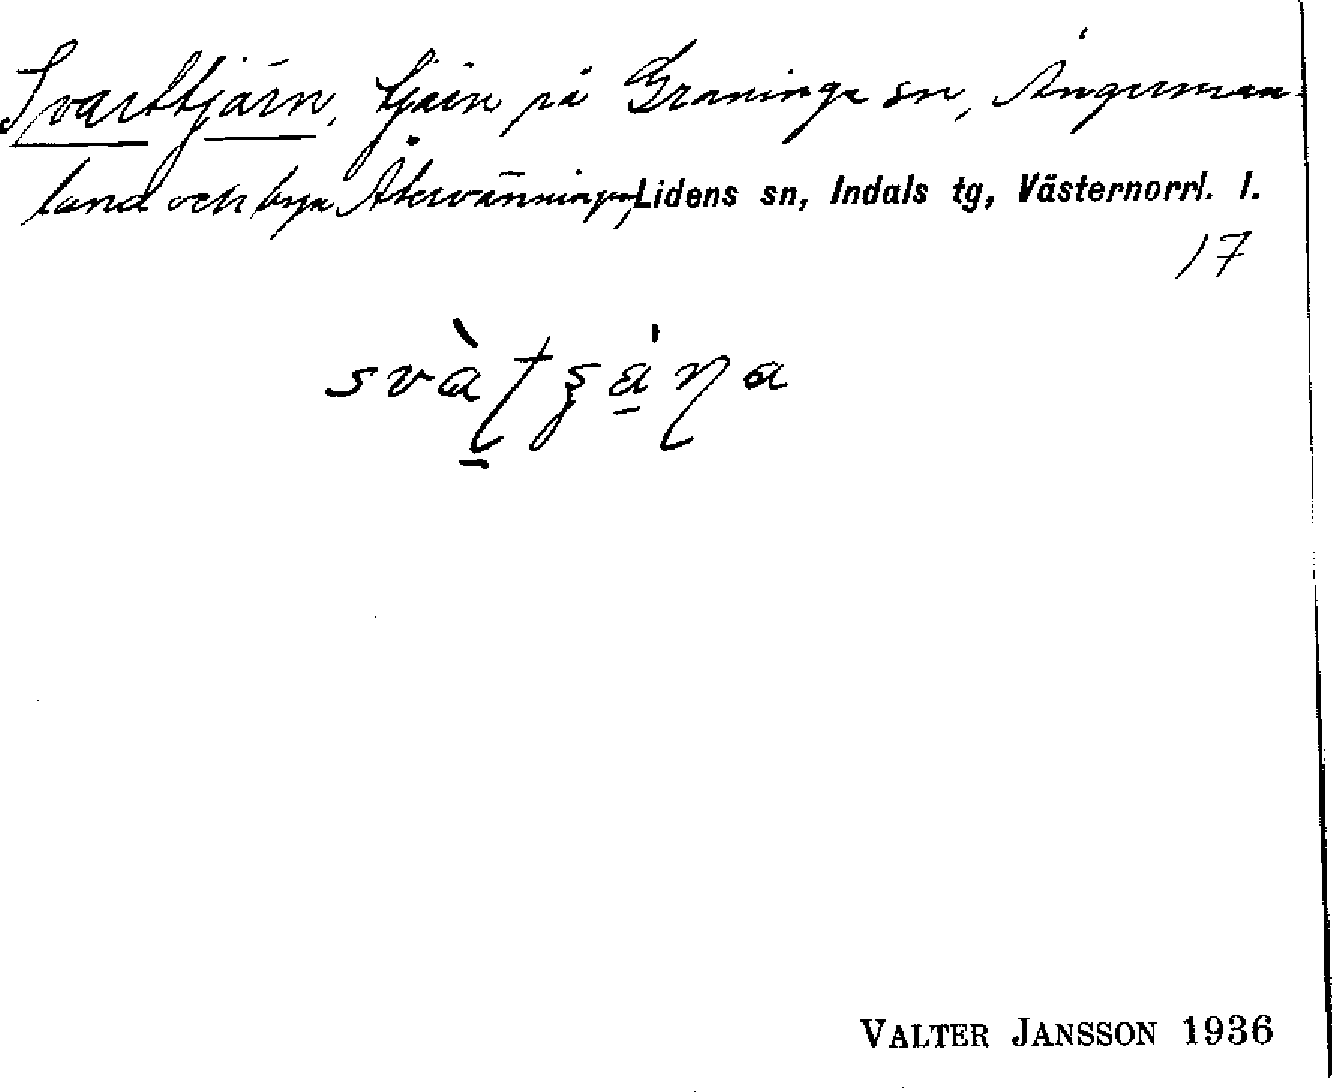 Svarttjärn, tjärn på Graninge sn, Ångerman-
land och byn Åkervänningen, Lidens sn, Indals tg, Västernorrl. l.
17
svàʈʂäɳa
VALTER JANSSON 1936